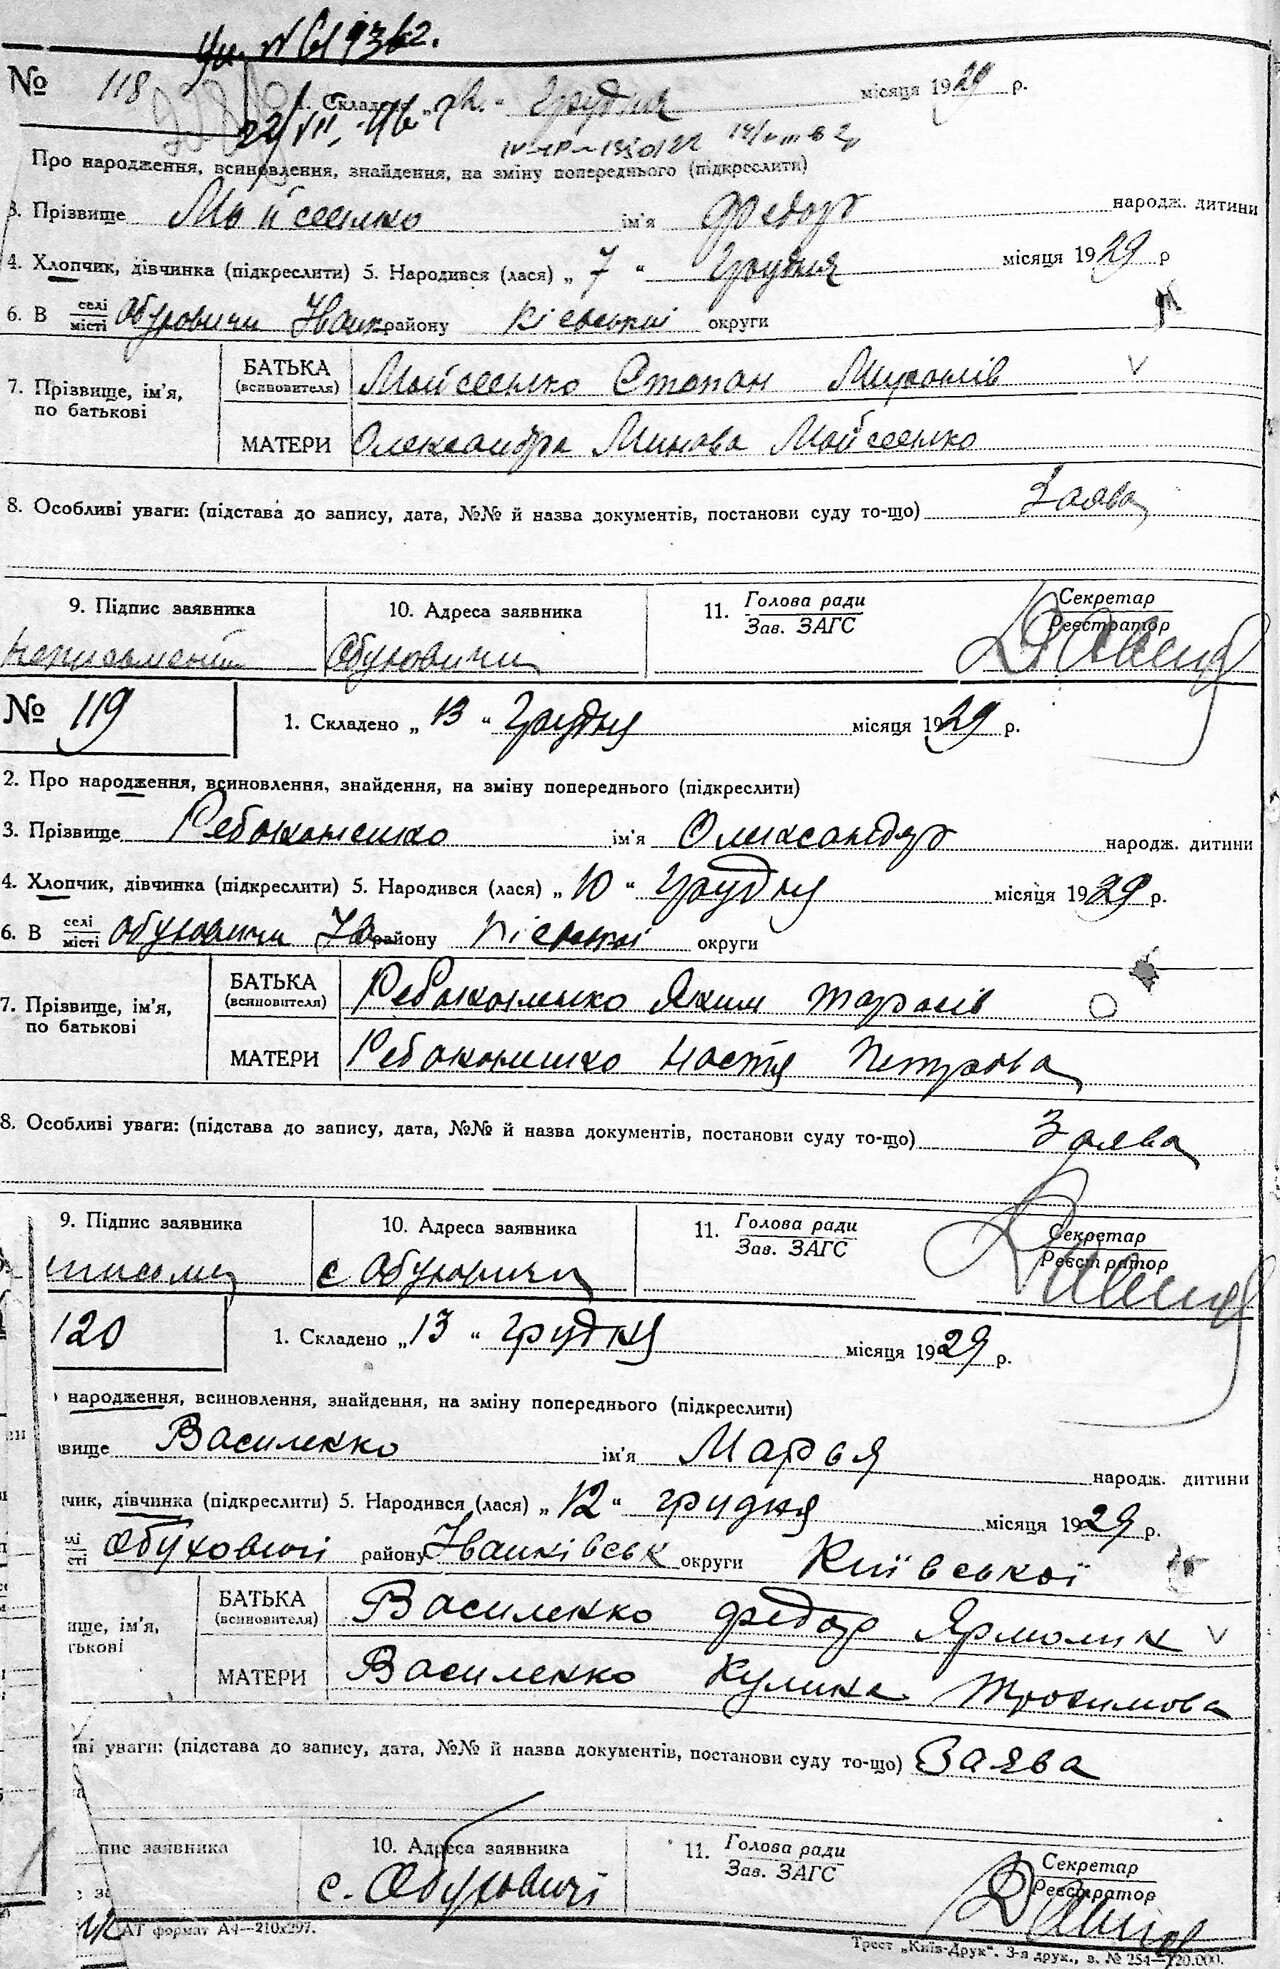 № 118
1. Складено „ " Грудня місяця 1929 р.
Про народження, всиновлення, знайдення, на зміну попереднього (підкреслити)
3. Прізвище Мойсеенко ім'я Федор народж. дитини
4. Хлопчик, дівчинка (підкреслити) 5. Народився (лася) „ 7 " Грудня місяця 1929 р
6. В селі/місті Обуховичи Іванк району Кіевскиі округи
7. Прізвище, ім'я, по батькові
БАТЬКА (всиновителя) Мойсеенко Степан
МАТЕРИ Олександра Минова Мойсеенко
8. Особливі уваги: (підстава до запису, дата, №№ й назва документів, постанови суду то-що) Заява
9. Підпис заявника 10. Адреса заявника 11. Голова ради Секретар
Зав. ЗАГС Реєстратор
Обуховичи
№ 119
1. Складено „ 13 " Грудня місяця 1929 р.
2. Про народження, всиновлення, знайдення, на зміну попереднього (підкреслити)
3. Прізвище Ребоконенко ім'я Олександр народж. дитини
4. Хлопчик, дівчинка (підкреслити) 5. Народився (лася) „ 10 " Грудня місяця 1929 р.
6. В селі/місті Обуховичи Ів району округи
7. Прізвище, ім'я, по батькові
БАТЬКА (всиновителя) Ребоконенко Яким Тарасів
МАТЕРИ Ребоконенко Настя Петрова
8. Особливі уваги: (підстава до запису, дата, №№ й назва документів, постанови суду то-що) Заява
9. Підпис заявника 10. Адреса заявника 11. Голова ради Секретар
Зав. ЗАГС Реєстратор
с Обуховичи
120
1. Складено „ 13 " Грудня місяця 1929 р.
народження, всиновлення, знайдення, на зміну попереднього (підкреслити)
звище Василенко ім'я Марья народж. дитини
чик, дівчинка (підкреслити) 5. Народився (лася) „ 12 " грудня місяця 1929 р.
Обуховичі району Іванківськ округи Київської
ище, ім'я,
тькові
БАТЬКА (всиновителя) Василенко Федор Ярмолин
МАТЕРИ Василенко Кулина Трохимова
ві уваги: (підстава до запису, дата, №№ й назва документів, постанови суду то-що) Заява
пис заявника 10. Адреса заявника 11. Голова ради Секретар
Зав. ЗАГС Реєстратор
с. Обуховичі
АТ формат А4—210х297.
Трест „Київ-Друк". 3-я друк., з. № 254—120.000.